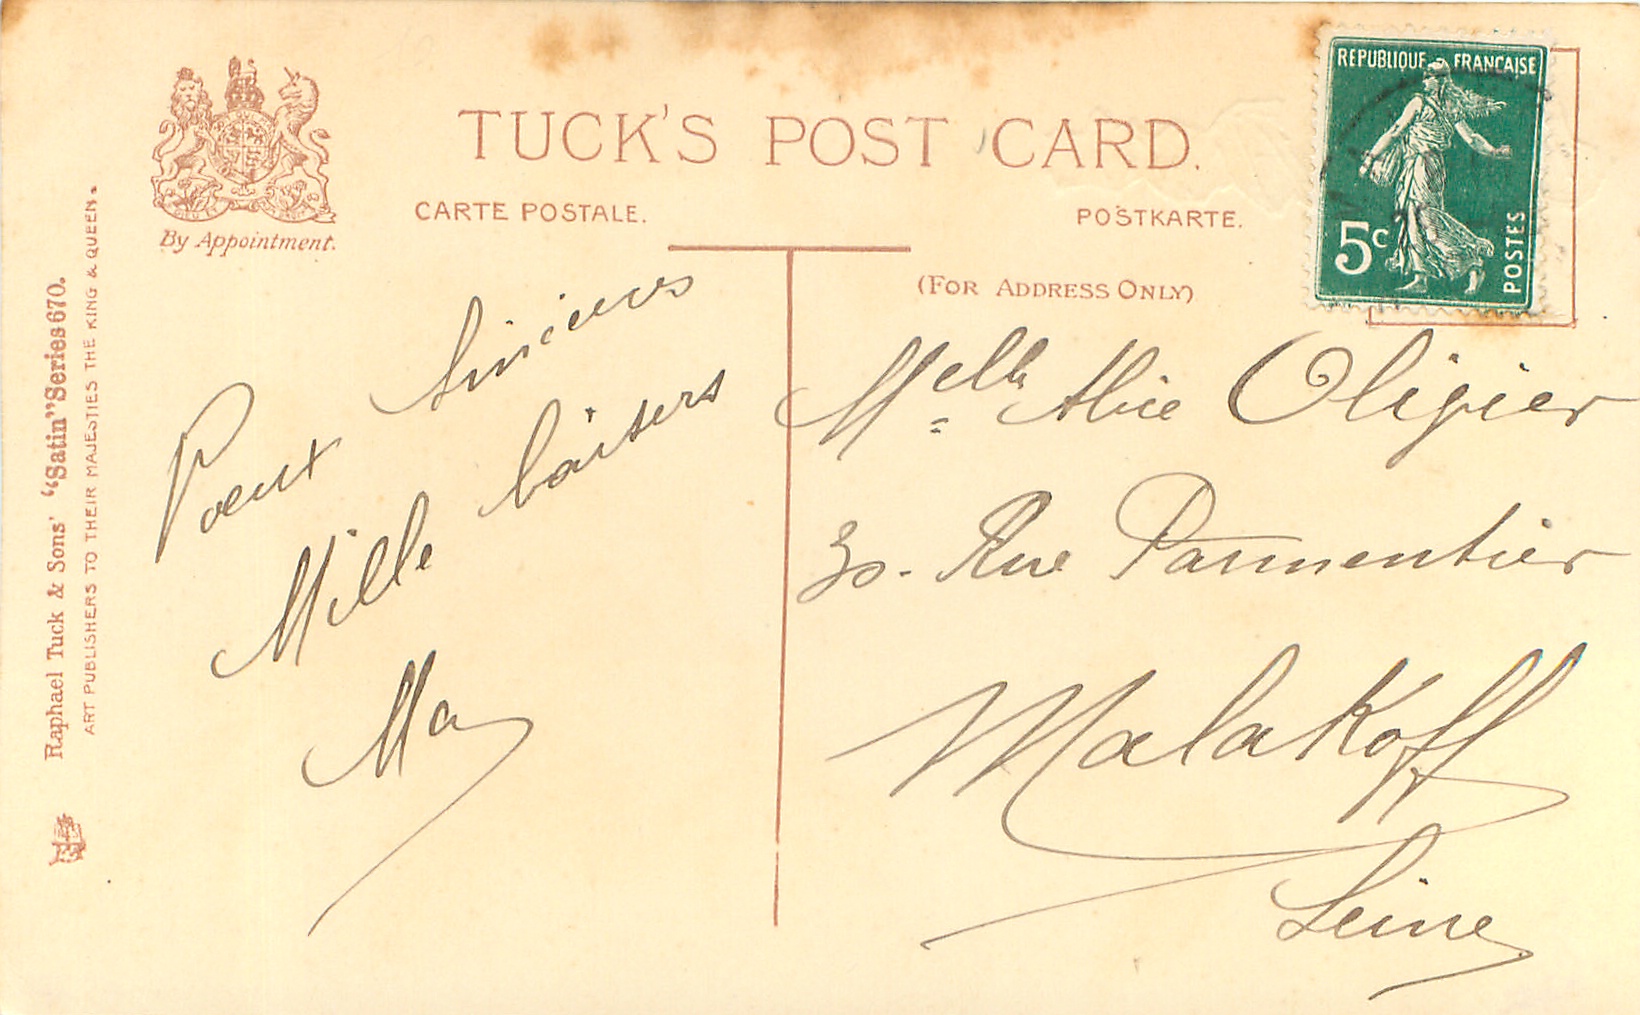 TUCK'S POST CARD.
CARTE POSTALE.
POSTKARTE.
By Appointment.
(FOR ADDRESS ONLY)
Raphael Tuck & Sons' "Satin" Series 670.
ART PUBLISHERS TO THEIR MAJESTIES THE KING & QUEEN.
REPUBLIQUE FRANÇAISE
5c
POSTES
Voeux Sincères
Mille baisers
Melle Alice Oligier
30. Rue Parmentier
Malakoff
Seine